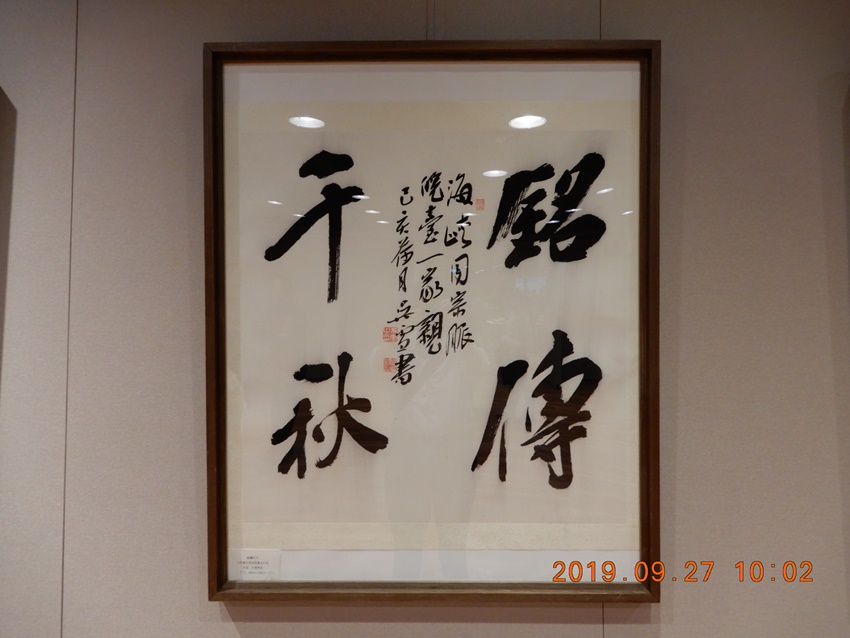 銘傳
千秋
海峽同宗脈
皖臺一家親
己亥荷月吳雪書
2019.09.27 10:02